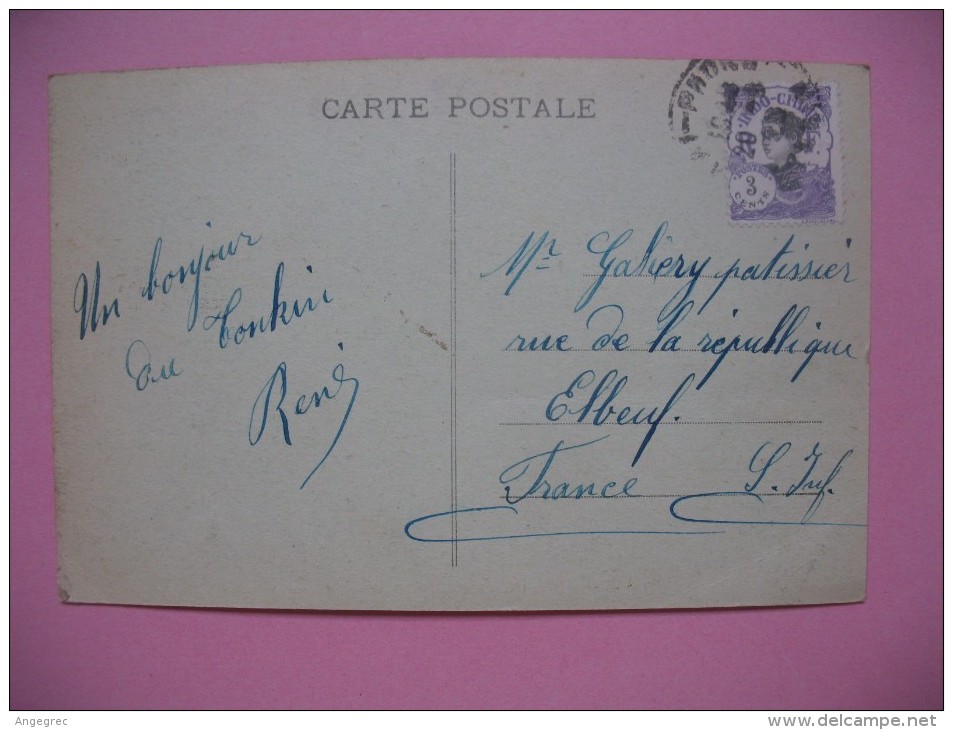 CARTE POSTALE
INDO-CHINE
POSTES
3
CENTS
Un bonjour
du Tonkin
René
Mr patissier
rue de la république
Elbeuf.
France S. Inf.
Angegrec
www.delcampe.net